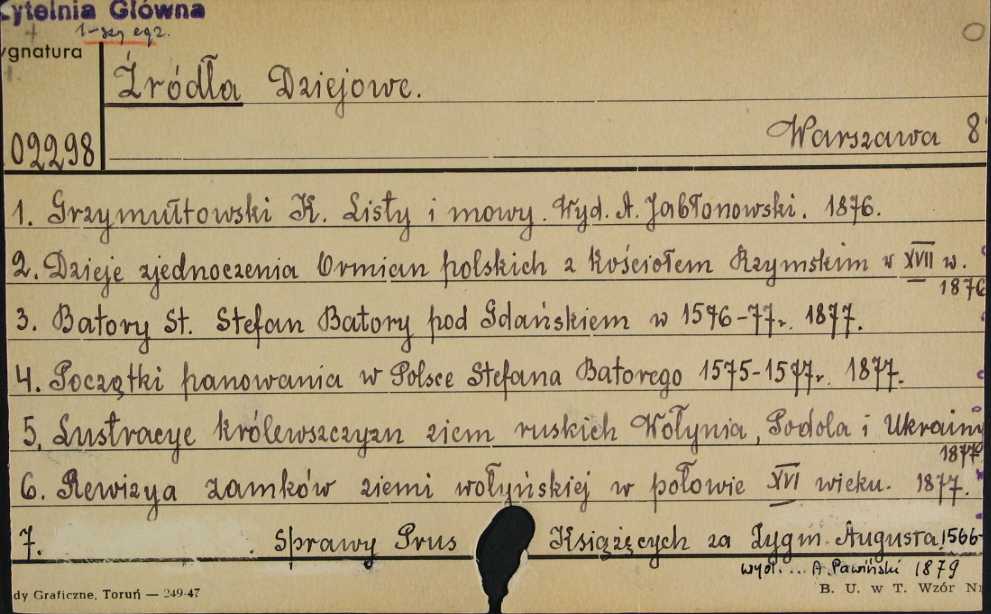 Czytelnia Główna
1-szy egz.
ygnatura
Źródła Dziejowe.
02298
Warszawa 8°
1. Grzymułtowski K. Listy i mowy. Wyd. A. Jabłonowski. 1876.
2. Dzieje zjednoczenia Ormian polskich z Kościołem Rzymskim w XVII w.
1876
3. Batory St. Stefan Batory pod Gdańskiem w 1576-77r. 1877.
4. Początki panowania w Polsce Stefana Batorego 1575-1577r. 1877.
5. Lustracye królewszczyzn ziem ruskich Wołynia, Podola i Ukrainy
1877.
6. Rewizya zamków ziemi wołyńskiej w połowie XVI wieku. 1877.
7. Sprawy Prus Książęcych za Zygm. Augusta 1566-
wyd.... A. Pawiński 1879
dy Graficzne, Toruń — 249-47
B. U. w T. Wzór Nr